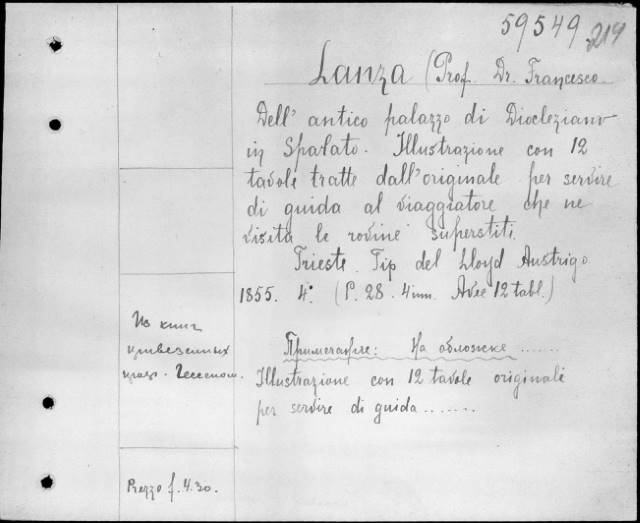 59549
219
Lanza (Prof. Dr. Francesco
Dell' antico palazzo di Diocleziano
in Spalato. Illustrazione con 12
tavole tratte dall'originale per servire
di guida al viaggiatore che ne
visita le rovine superstiti.
Trieste. Tip del Lloyd Austrigo.
1855. 4°. (P. 28. 4 nn. Avec 12 tabl.)
Из книг
привезенных
Примечание: На обложке ......
Illustrazione con 12 tavole originale
per servire di guida.......
Prezzo f. 4.30.